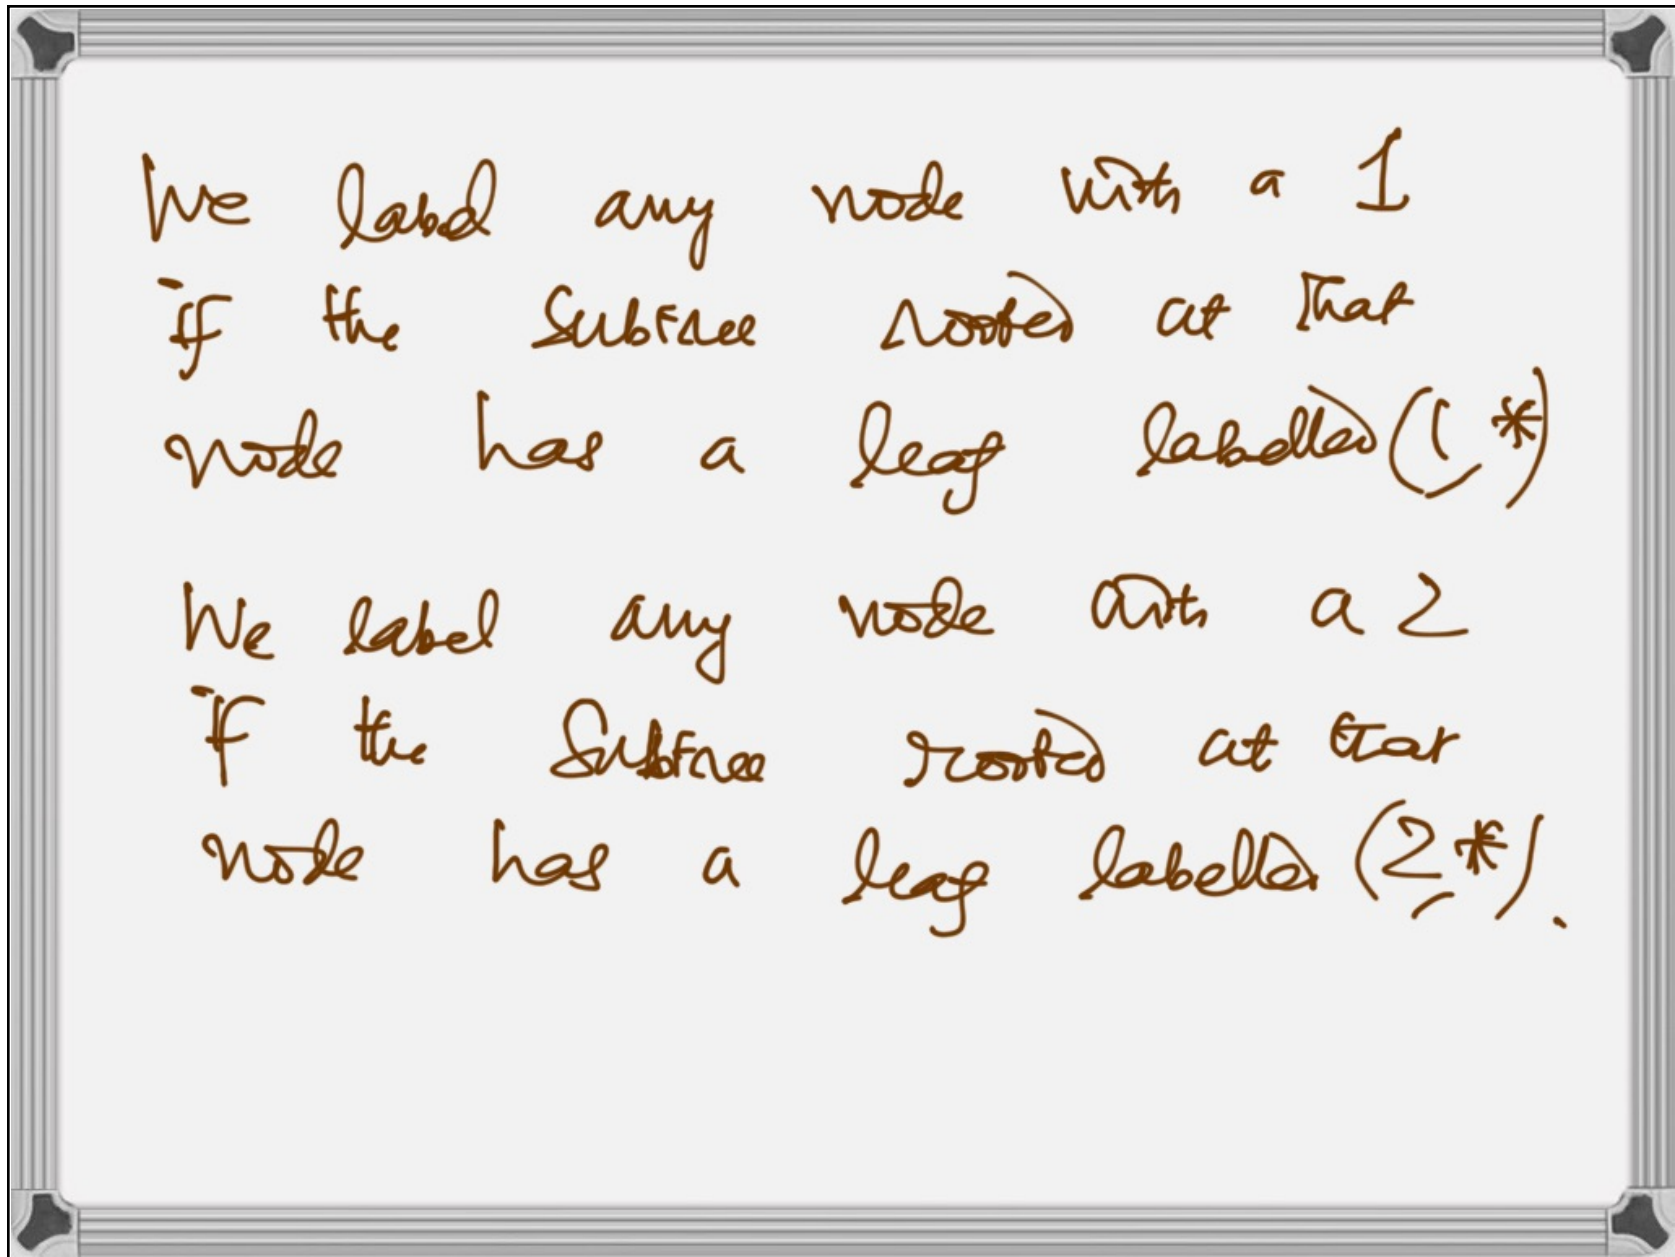 We label any node with a 1
if the subtree rooted at that
node has a leaf labelled (1,*)
We label any node with a 2
if the subtree rooted at that
node has a leaf labelled (2,*).